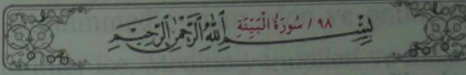 ٩٨ / سُورَةُ الْبَيِّنَةِ
بِسْمِ اللَّهِ الرَّحْمَٰنِ الرَّحِيمِ